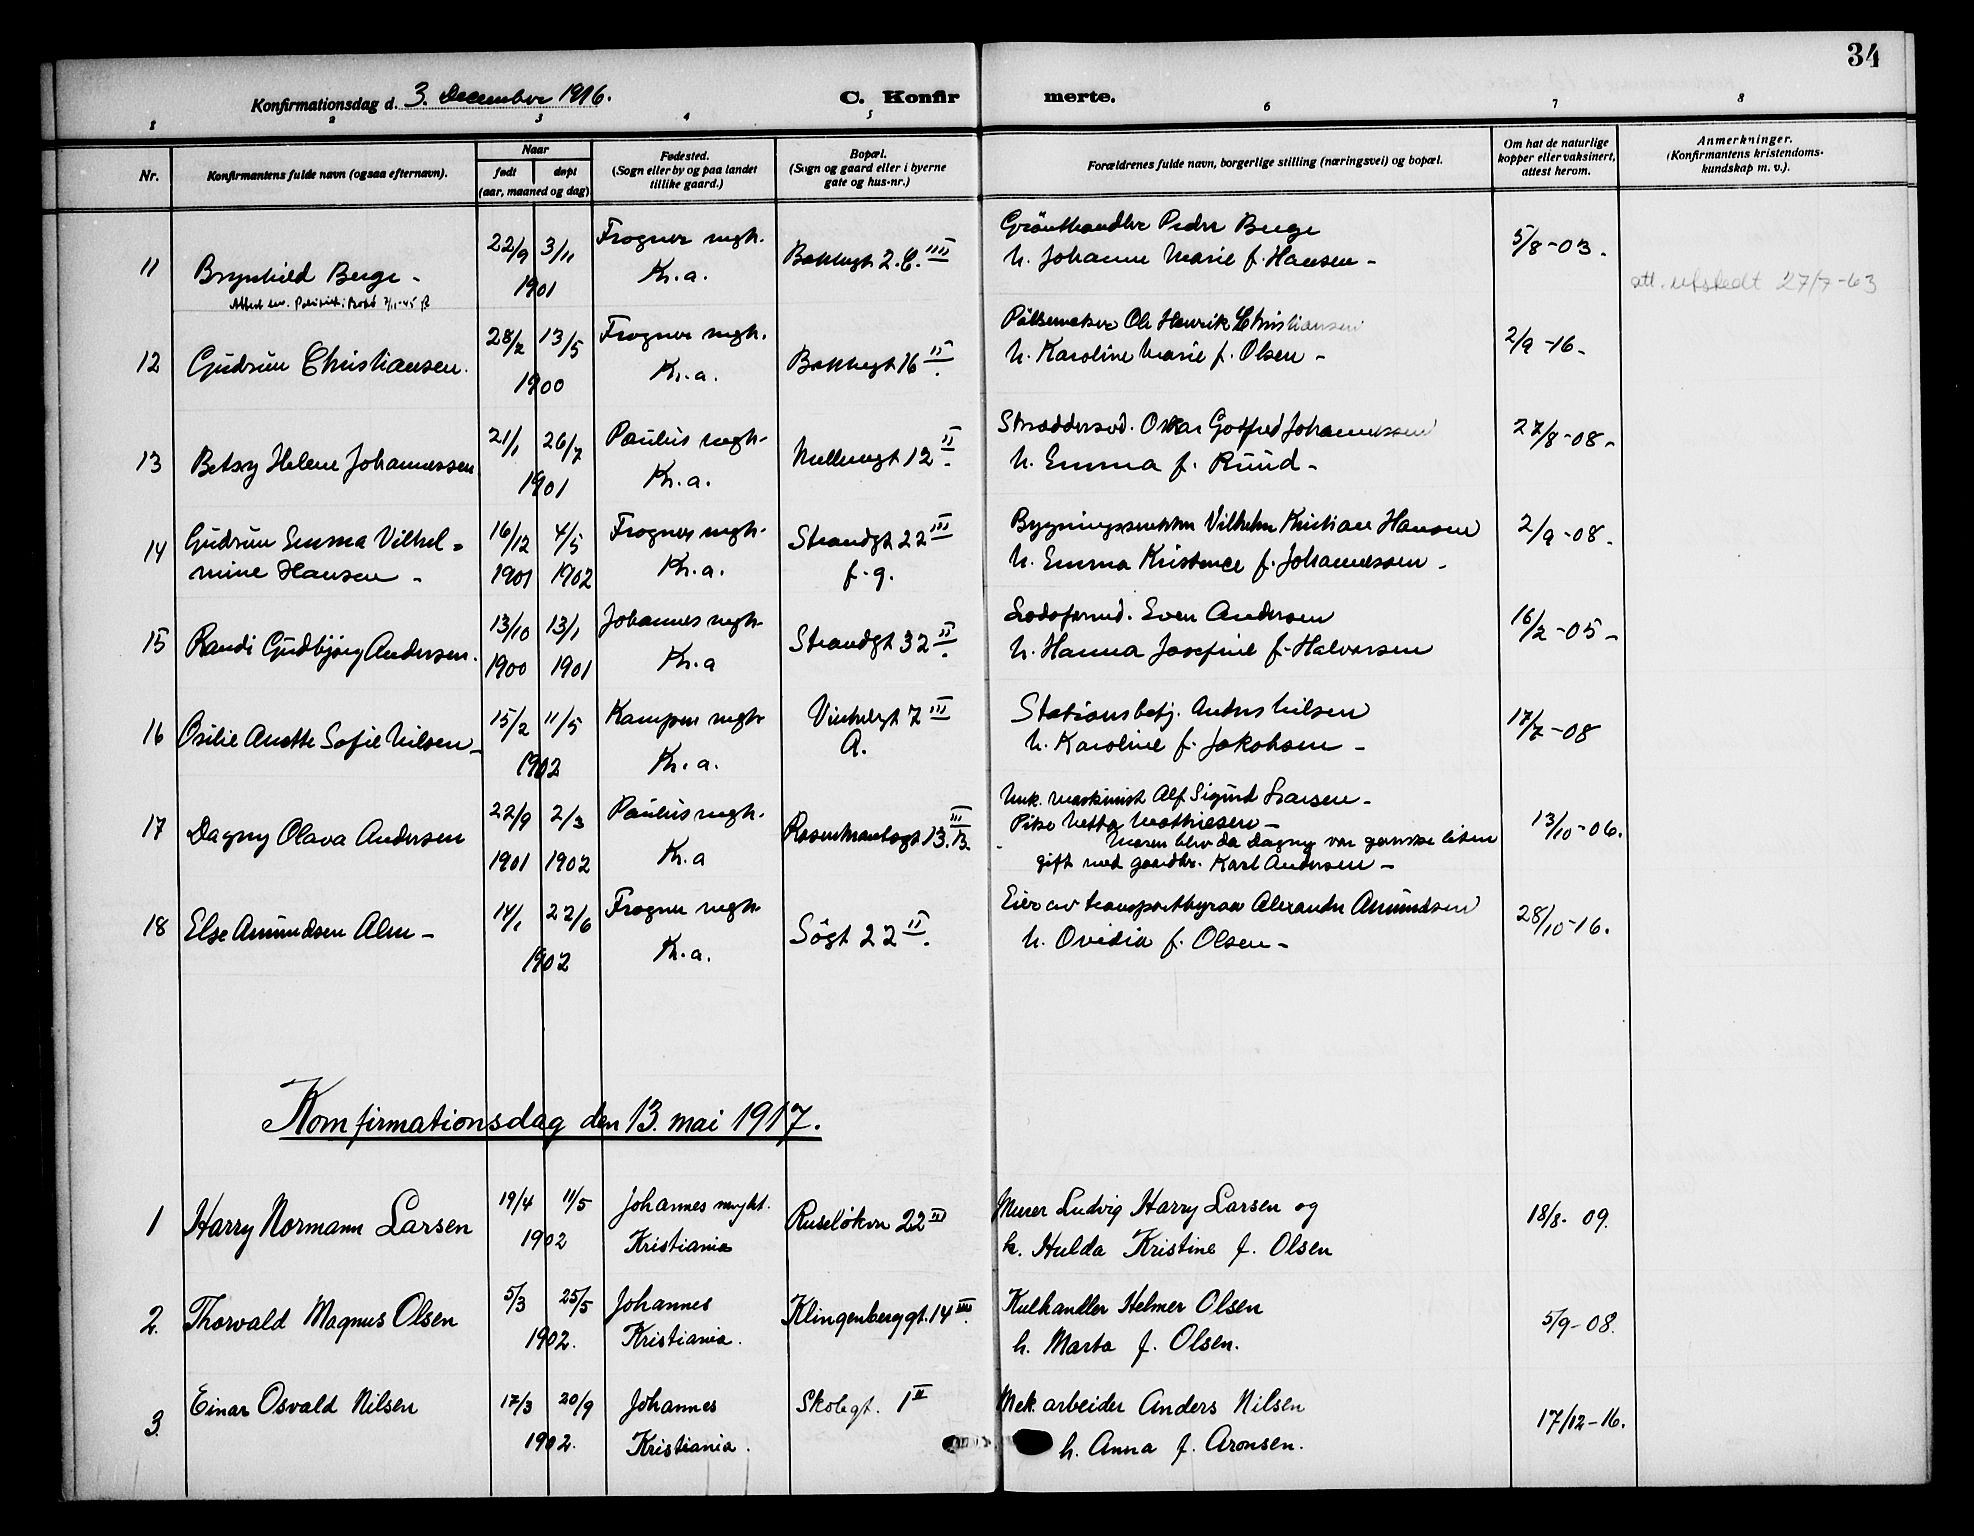 34
Konfirmationsdag d. 3. December 1916.
C. Konfirmerte.
1 2 3 4 5 6 7 8
Nr.
Konfirmantens fulde navn (ogsaa efternavn).
Naar
født døpt
(aar, maaned og dag)
Fødested.
(Sogn eller by og paa landet
tillike gaard.)
Bopæl.
(Sogn og gaard eller i byerne
gate og hus-nr.)
Forældrenes fulde navn, borgerlige stilling (næringsvei) og bopæl.
Om hat de naturlige
kopper eller vaksinert,
attest herom.
Anmerkninger.
(Konfirmantens kristendoms-
kundskap m. v.).
11 Brynhild Berge - 22/9 3/11 1901 Frogner mgh. Kr.a. 2.C. III
Grönthandler Peder Berge
h. Johanne Marie f. Hansen -
5/8-03.
att. utstedt 27/7-63
12 Gudrun Christiansen. 28/2 13/5 1900 Frogner mgh. Kr.a. 16 II
Pölsemaker Ole Henrik Christiansen
h. Karoline Marie f. Olsen -
2/9-16-
13 Betsy Helene Johannessen 21/1 26/7 1901 Paulus mgh. Kr.a. 12 II
Skræddersvd. Oskar Gotfred Johannessen
h. Emma f. Ruud -
27/8-08-
14 Gudrun Emma Vilhel-
mine Hansen - 16/12 1901 4/5 1902 Frogner mgh. Kr.a. Strandgt 22 III f.g.
Vilhelm Kristian Hansen
h. Emma Kristence f. Johannessen -
2/9-08.
15 Randi Gudbjörg Andersen. 13/10 1900 13/1 1901 Johannes mgh. Kr.a Strandgt 32 II.
Even Andersen
h. Hanna Josefine f. Halvorsen
16/2-05-
16 Osilie Anette Sofie Nilsen - 15/2 11/5 1902 Kampen mgh. Kr.a. 7 III A.
Stationsbetj. Anders Nilsen
h. Karoline f. Jakobsen -
17/7-08
17 Dagny Olava Andersen 22/9 1901 2/3 1902 Paulus mgh. Kr.a Rosenkrantzgt 13. III B.
Unk. maskinist Alf Sigurd Larsen -
Pike Netta Mathiesen -
Moren blev da Dagny var ganske liten
gift med gaardbr. Karl Andersen -
13/10-06.
18 Else Amundsen Alm - 14/1 22/6 1902 Frogner mgh. Kr.a. Sögt 22 II.
Eier av transportbyraa Alexander Amundsen
h. Ovidia f. Olsen -
28/10-16.
Konfirmationsdag den 13. mai 1917.
1 Harry Normann Larsen 19/4 11/5 1902 Johannes mght. Kristiania Ruseløkvn 22 II
Murer Ludvig Harry Larsen og
h. Hulda Kristine f. Olsen
18/8. 09.
2. Thorvald Magnus Olsen 5/3 25/5 1902. Johannes Kristiania. Klingenberggt. 14 III.
Kulhandler Helmer Olsen
h. Marta f. Olsen.
5/9-08.
3. Einar Osvald Nilsen 17/3 20/9 1902. Johannes Kristiania. Skolegt. 1 II
Mek. arbeider Anders Nilsen
h. Anna f. Aronsen.
17/12-16.